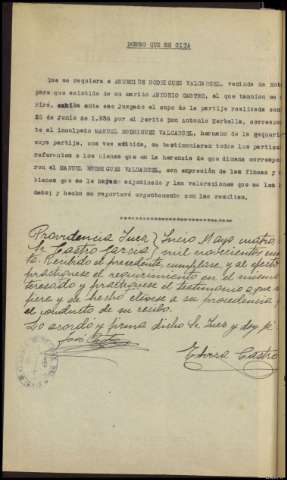 DEBER QUE SE CITA
Que se requiera a ASUNCION RODRIGUEZ VALCARCEL, vecina de
para que asistida de su marido ANTONIO CASTRO, al que tambien se
rirá, exhiba ante ese Juzgado el cupo de la partija realizada con
20 de Junio de 1.930 por el perito Don Antonio Corbelle, correspo
al inculpado MANUEL RODRIGUEZ VALCARCEL, hermano de la
cuya partija, una vez exhibida, se testimoniaran todos los particul
referentes a los bienes que en la herencia de que dimana correspo
ron al MANUEL RODRIGUEZ VALCARCEL, con expresión de las fincas y
bienes que se le hayan adjudicado y las valoraciones que se les
dado; y hecho se reportará exponteando con las resultas.
Providencia Juez Incio Mayo cuatro
Sr Castro Garcia mil novecientos
ta. Recibido el precedente, cumplase, y al efecto
practiquese el requerimiento en el mismo
teresado y practiquese el testimonio a que
fiere y de hecho elévese a su procedencia
el conducto de su recibo.
Lo acordó y firma dicho Sr Juez y doy fé
Castro